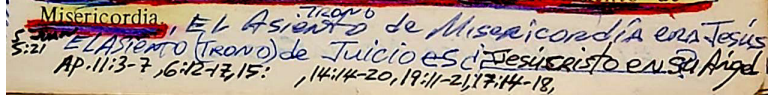 TRONO
Misericordia, EL Asiento de Misericordia era Jesús
5:21 EL ASIENTO (TRONO) de Juicio es Jesúscristo en su Angel
AP. 11:3-7, 6:12-17, 15: , 14:14-20, 19:11-21, 17:14-18,